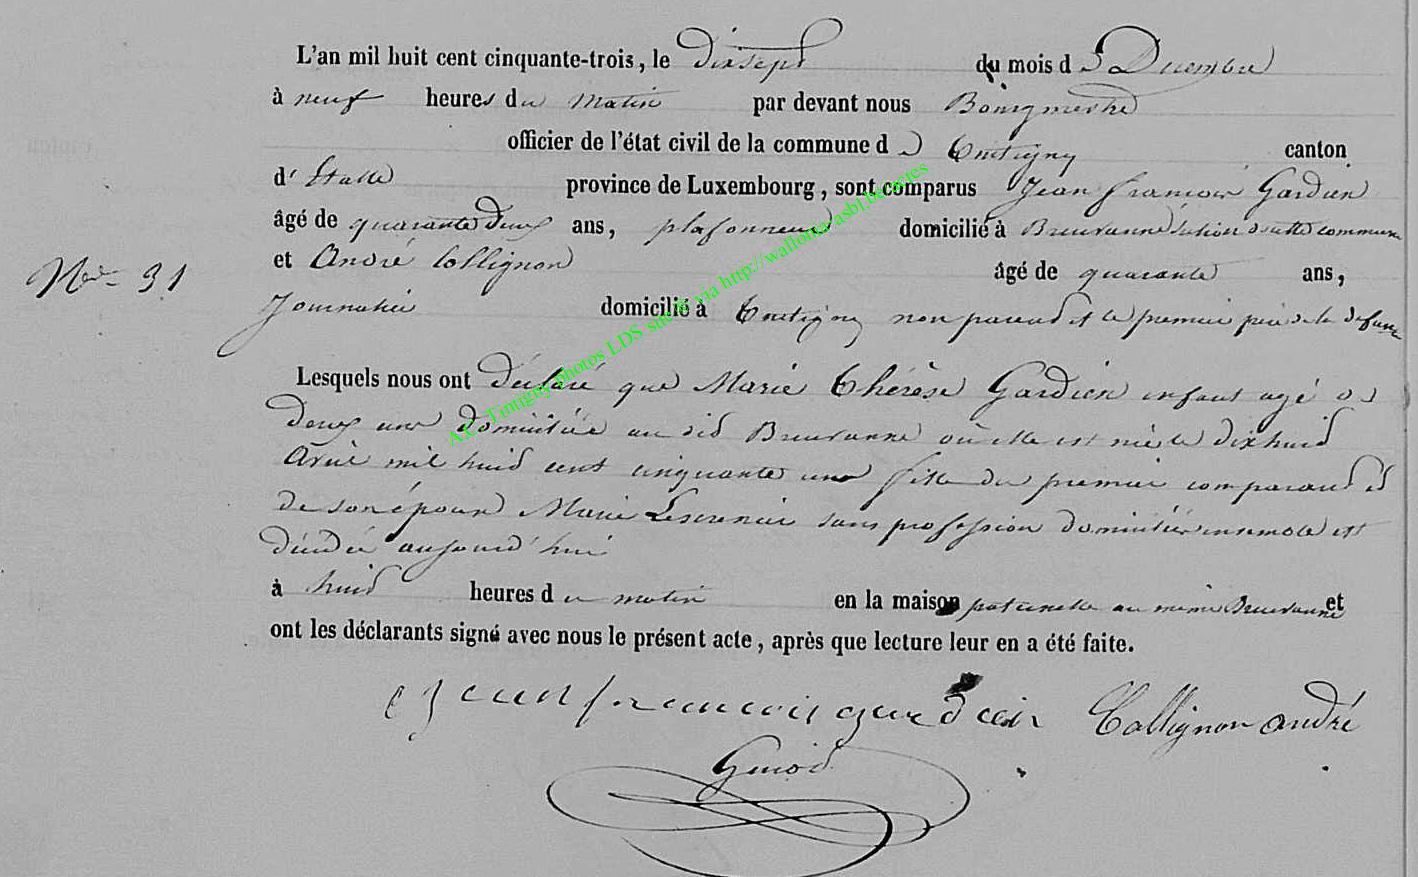 L'an mil huit cent cinquante-trois, le dixsept du mois de Decembre
à neuf heures du matin par devant nous Bourgmestre
officier de l'état civil de la commune de Tintigny canton
d'Etalle province de Luxembourg, sont comparus Jean françois Gardien
âgé de quarante deux ans, plafonneur domicilié à Breuvanne section de cette commune
et André Collignon âgé de quarante ans,
No 31
Journalier domicilié à Tintigny non parent et le premier père de la defunte
Lesquels nous ont déclaré que Marie Thérèse Gardien enfant agé de
deux ans domiciliée au dit Breuvanne où elle est née le dix huit
Avril mil huit cent cinquante un fille du premier comparant et
de son épouse Marie sans profession domiciliés ensemble est
décédée aujourd'hui
à huit heures du matin en la maison paternelle au même Breuvanne et
ont les déclarants signé avec nous le présent acte, après que lecture leur en a été faite.
jean francois gardien Collignon andré
A.C. Tintigny photos LDS site & via http://wallonia-asbl.be/actes